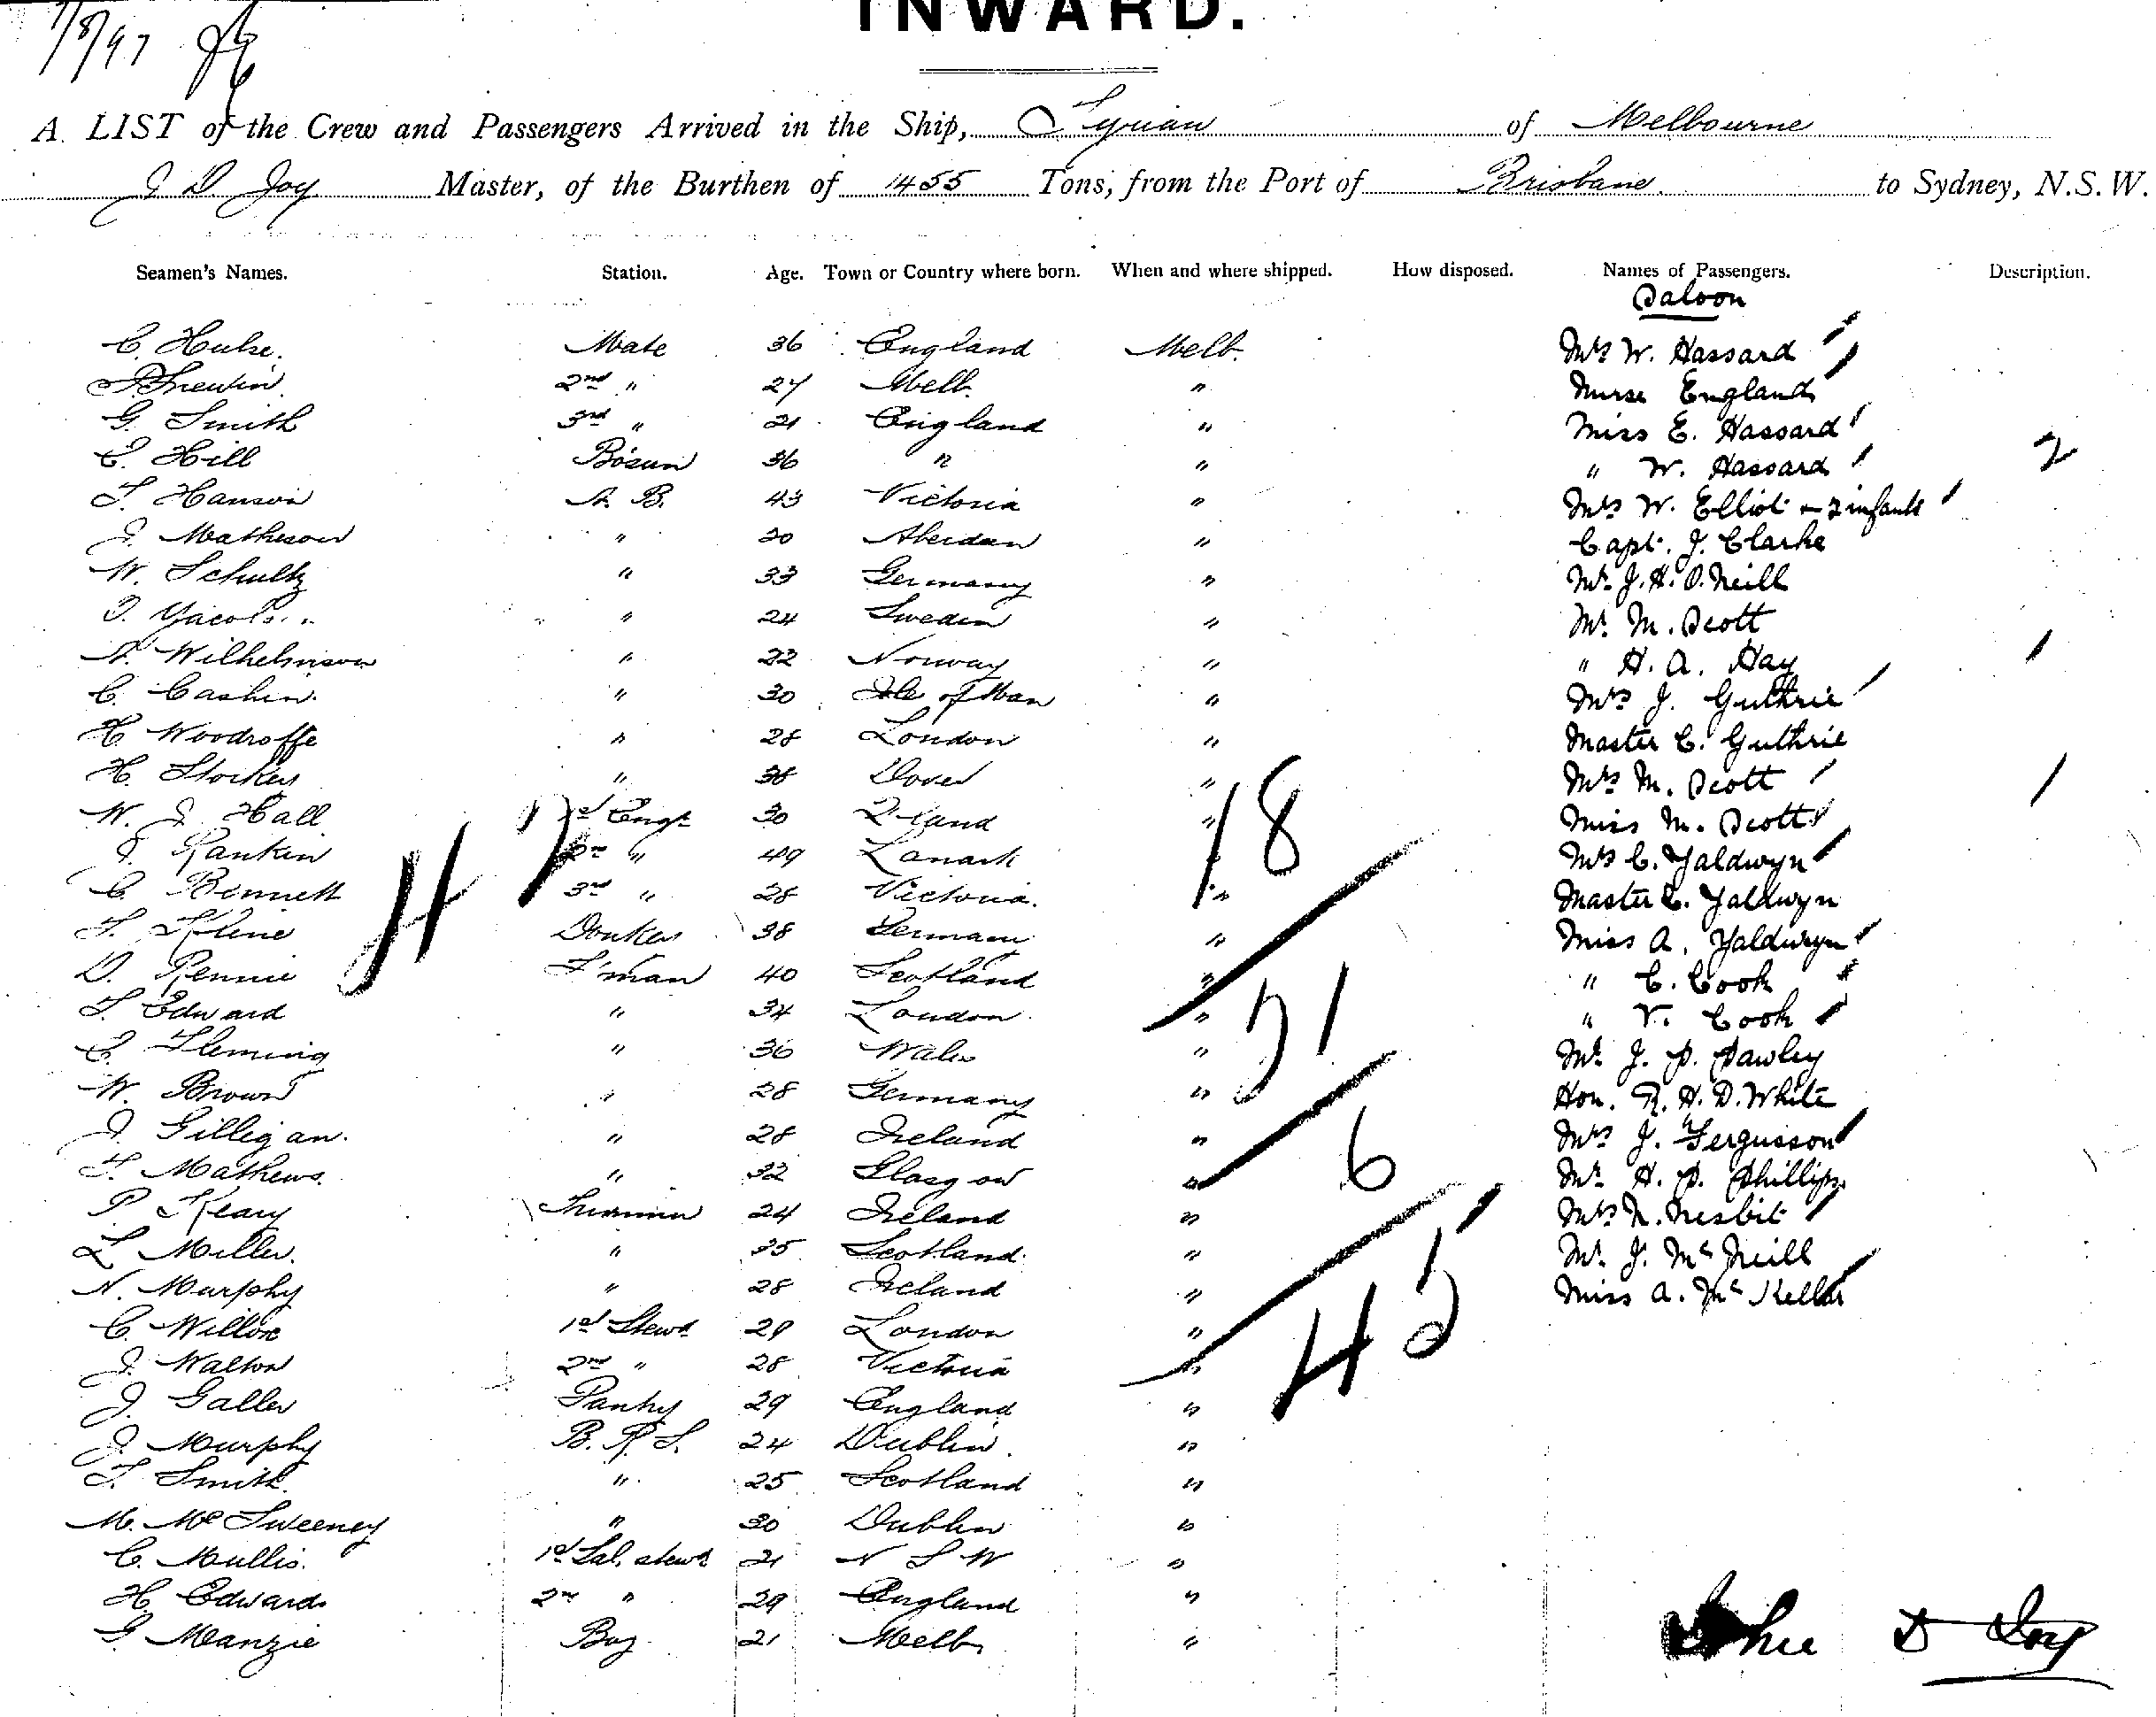 1/8/97
INWARD.
A LIST of the Crew and Passengers Arrived in the Ship, Tyrian of Melbourne
J D Joy Master, of the Burthen of 1455 Tons, from the Port of Brisbane to Sydney, N.S.W.
Seamen's Names. Station. Age. Town or Country where born. When and where shipped. How disposed. Names of Passengers. Description.
Saloon
C. Hulse. Mate 36 England Melb. Mrs W. Hassard
2nd " 27 Melb. " Nurse England
G. Smith 3rd " 21 England " Miss E. Hassard
C. Hill Bosun 36 " " " W. Hassard 2
T. Hanson A. B. 43 Victoria " Mrs W. Elliot & 2 infants
J. Matheson " 30 Aberdeen " Capt. J. Clarke
W. Schultz " 33 Germany " Mr J. H. O.Neill
" 24 Sweden " Mr M. Scott
A. Wilhelmson " 22 Norway " " H. A. Hay 1
C. Cashin. " 30 Isle of Man " Mrs J. Guthrie
H Woodroffe " 28 London " Master C. Guthrie
H. Stocker " 38 Dover " Mrs M. Scott 1
W. J. Hall 1st Engr 30 Q-land " Miss M. Scott
J. Rankin 2nd " 49 Lanark " Mrs C. Yaldwyn
C. Bennett 3rd " 28 Victoria. " Master C. Yaldwyn
F. Kline Donkey 38 Germany " Miss A. Yaldwyn
D. Rennie F'man 40 Scotland " " C. Cook
T. Edward " 34 London " " V. Cook
C. Fleming " 36 Wales " Mr J. P. Pawley
W. Brown " 28 Germany " Hon. R. H. D. White
J. Gilligan. " 28 Ireland " Mrs J. Fergusson
T. Mathews. " 32 Glasgow " Mr H. P. Phillips
P Keary Trimmer 24 Ireland " Mrs N. Nesbit
L Miller. " 35 Scotland " Mr J. McNeill
N. Murphy " 28 Ireland " Miss A. McKellar
C. Willox 1st Stewd 29 London "
J. Walton 2nd " 28 Victoria "
J. Galler Pantry 29 England "
J. Murphy B. R. S. 24 Dublin "
T. Smith " 25 Scotland "
M. McSweeney " 30 Dublin "
C. Mullis. 1st Sal. stewd 21 N S W "
H Edwards 2nd " 29 England "
G. Manzie Boy 21 Melb "
18
21
6
45
John D Joy